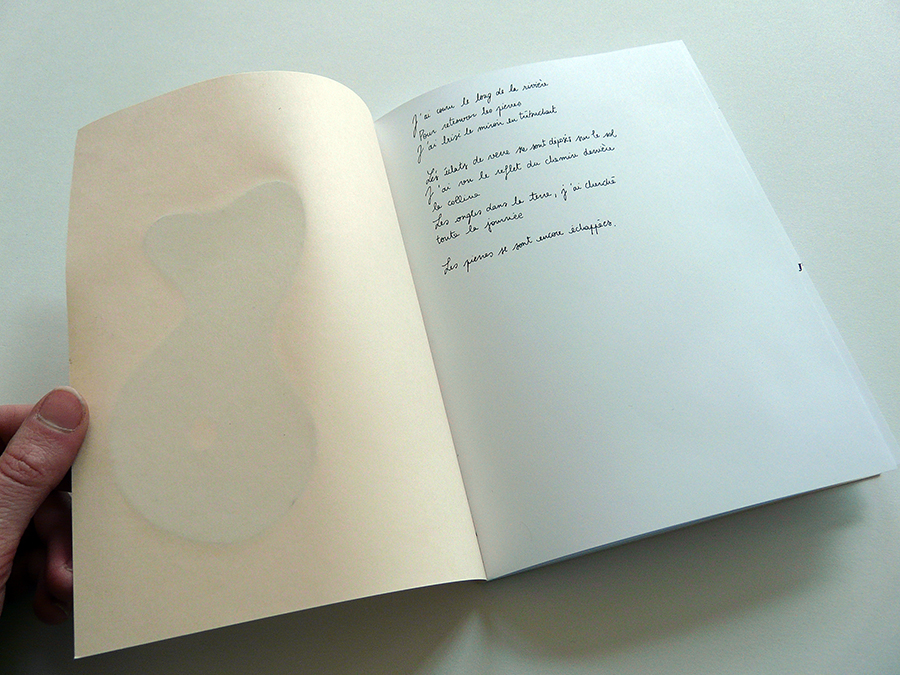 J'ai couru le long de la rivière
Pour retrouver les pierres
J'ai brisé le miroir en trébuchant
Les éclats de verre se sont déposés sur le sol
J'ai vu le reflet du chemin derrière
la colline
Les ongles dans la terre, j'ai cherché
toute la journée
Les pierres se sont encore échappées.
J